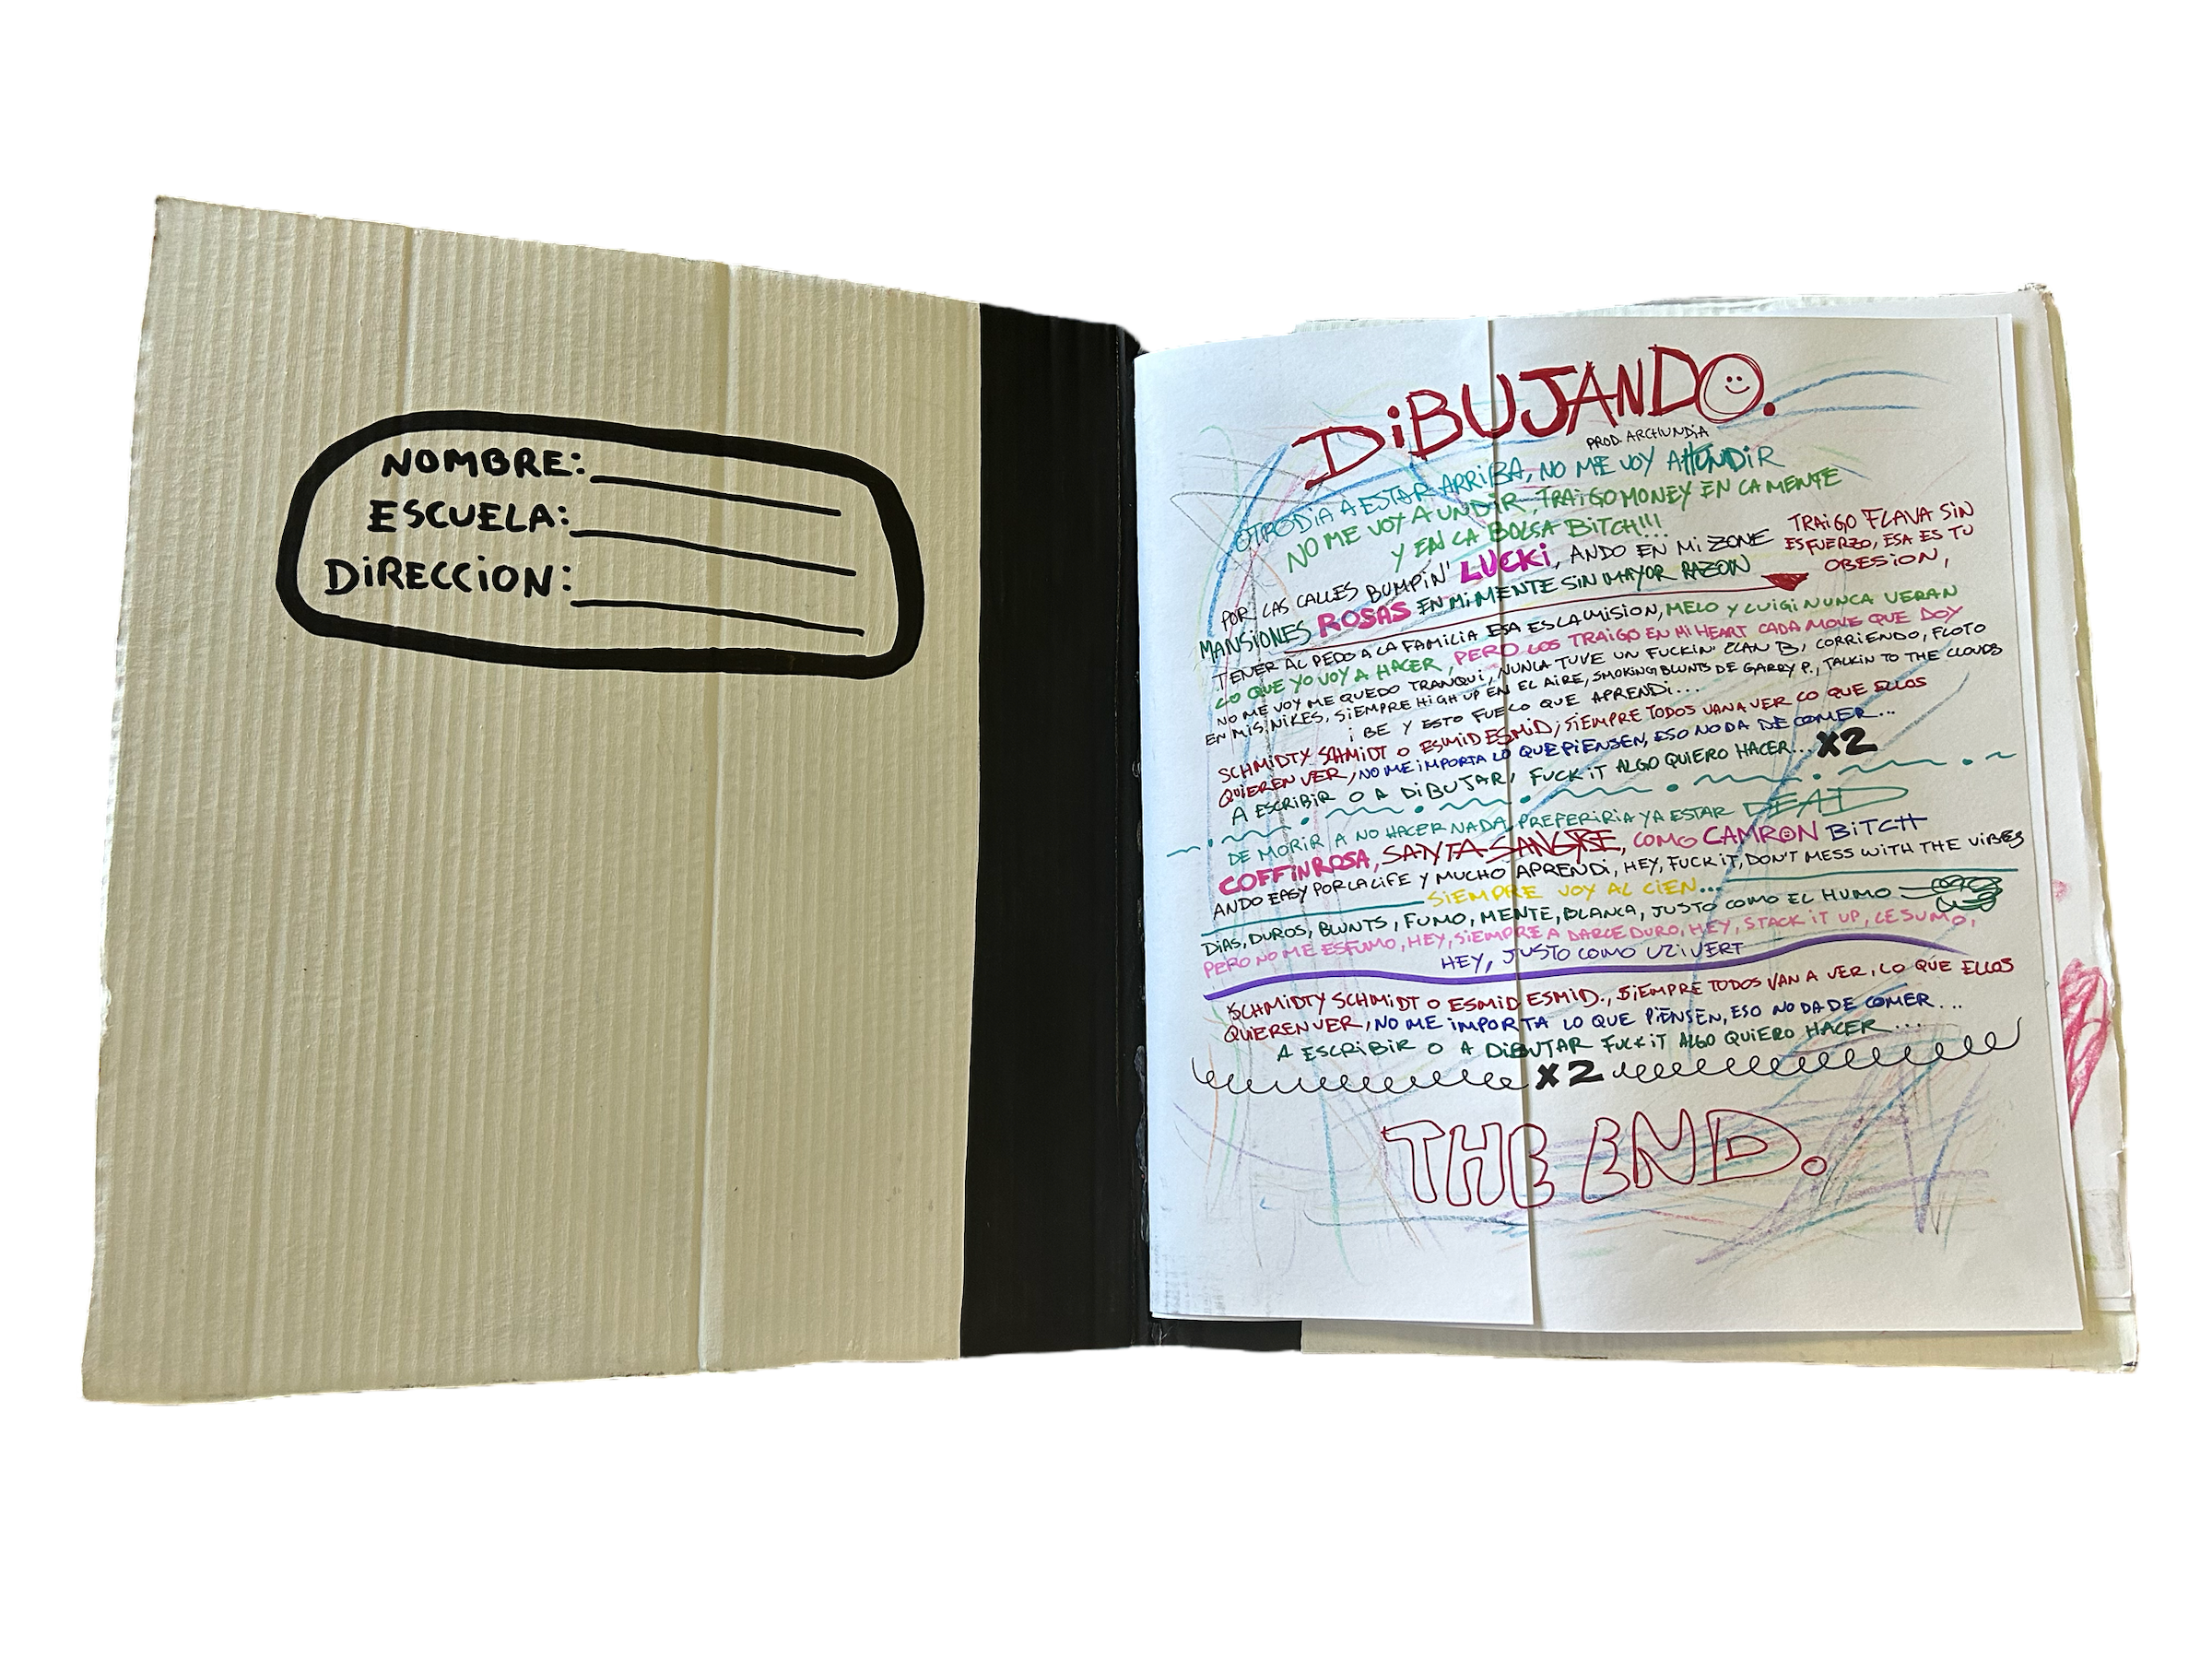 NOMBRE:
ESCUELA:
DiRECCiON:
DiBUJANDO.
PROD. ARCHUNDiA
OTRO DiA A ESTAR ARRiBA, NO ME VOY A HUNDiR
NO ME VOY A UNDiR, TRAiGO MONEY EN LA MENTE
Y EN LA BOLSA BiTCH!!!
POR LAS CALLES BUMPiN' LUCKi, ANDO EN Mi ZONE
TRAiGO FLAVA SiN
ESFUERZO, ESA ES TU
OBESiON,
MANSiONES ROSAS EN Mi MENTE SiN MAYOR RAZON
TENER AL PEDO A LA FAMiLiA ESA ES LA MiSiON, MELO Y LUiGi NUNCA VERAN
LO QUE YO VOY A HACER, PERO LOS TRAiGO EN Mi HEART CADA MOVE QUE DOY
NO ME VOY ME QUEDO TRANQUi, NUNCA TUVE UN FUCKiN' PLAN B, CORRiENDO, FLOTO
EN MiS NiKES, SiEMPRE HiGH UP EN EL AiRE, SMOKiNG BLUNTS DE GARRY P., TALKiN TO THE CLOUDS
BE Y ESTO FUE LO QUE APRENDi...
SCHMiDTY SCHMiDT O ESMiD ESMiD, SiEMPRE TODOS VAN A VER LO QUE ELLOS
QUiEREN VER, NO ME iMPORTA LO QUE PiENSEN, ESO NO DA DE COMER...
A ESCRiBiR O A DiBUJAR, FUCK iT ALGO QUiERO HACER... X2
DE MORiR A NO HACER NADA, PREFERiRiA YA ESTAR DEAD
COFFiN ROSA, SANTA SANGRE, COMO CAMRON BiTCH
ANDO EASY POR LA LiFE Y MUCHO APRENDi, HEY, FUCK iT, DON'T MESS WiTH THE ViBES
SiEMPRE VOY AL CiEN...
DiAS, DUROS, BLUNTS, FUMO, MENTE, BLANCA, JUSTO COMO EL HUMO
PERO NO ME ESFUMO, HEY, SiEMPRE A DARLE DURO, HEY, STACK iT UP, LE SUMO,
HEY, JUSTO COMO UZi VERT
SCHMiDTY SCHMiDT O ESMiD ESMiD., SiEMPRE TODOS VAN A VER, LO QUE ELLOS
QUiEREN VER, NO ME iMPORTA LO QUE PiENSEN, ESO NO DA DE COMER...
A ESCRiBiR O A DiBUJAR FUCK iT ALGO QUiERO HACER...
X2
THE END.